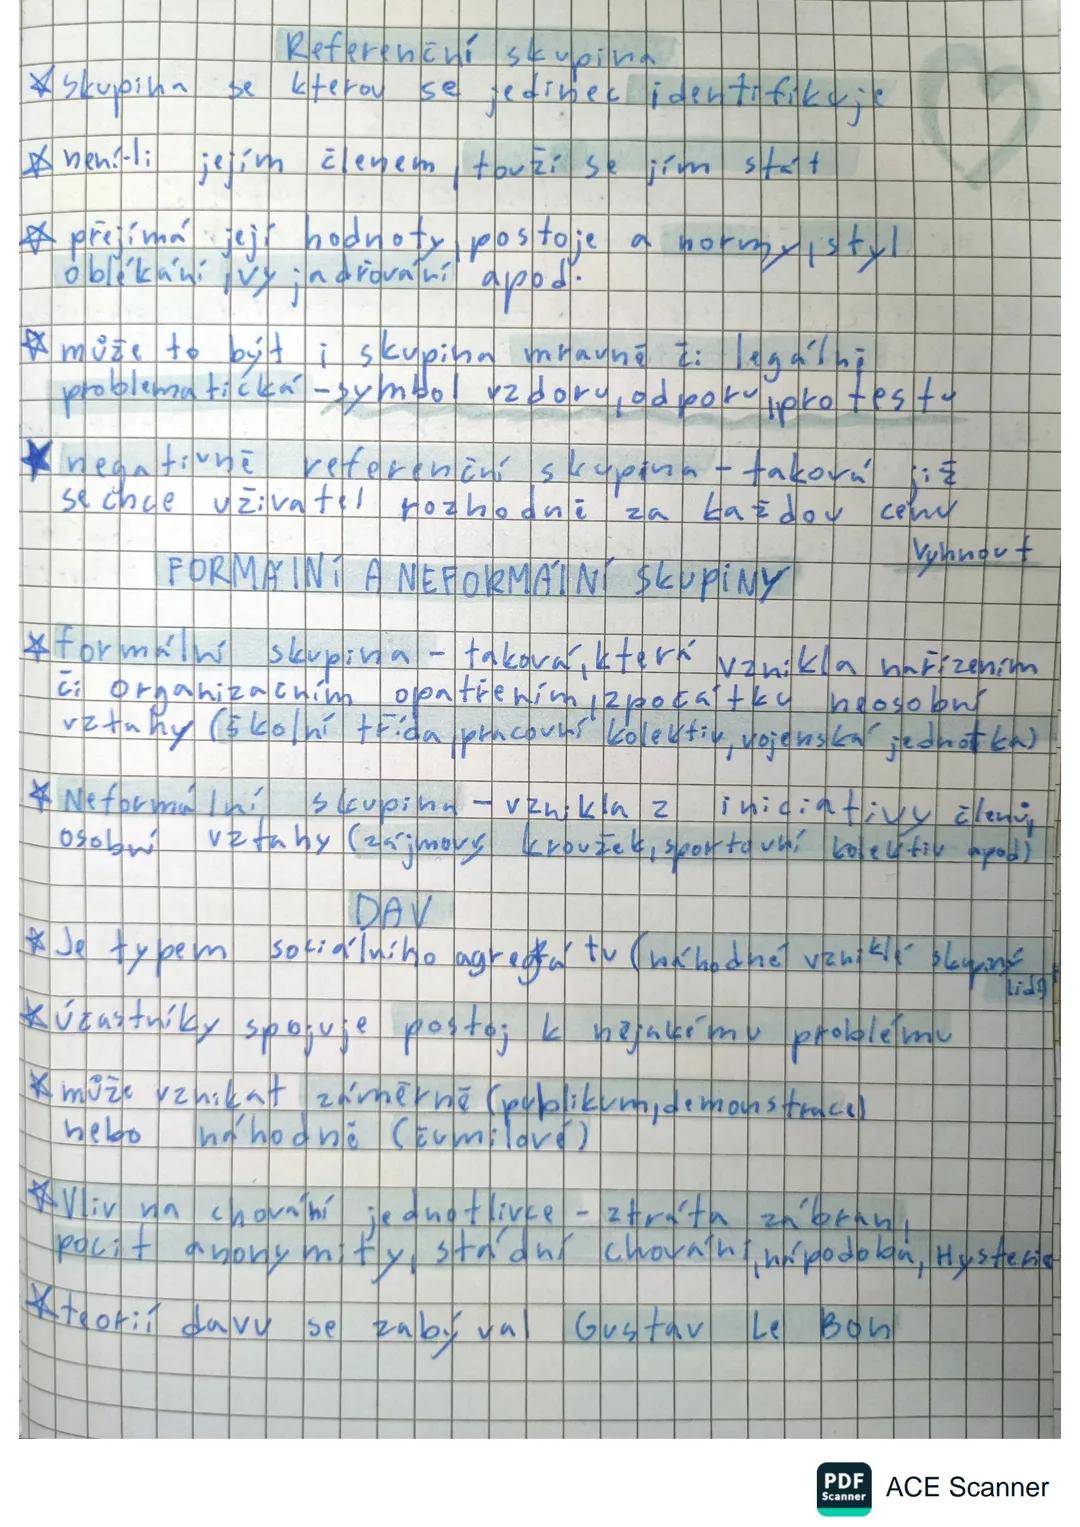 Referenční skupina
skupina se kterou se jedinec identifikuje
není-li jejím členem, touží se jím stát
přejímá její hodnoty, postoje a normy, styl
oblékání, vyjadřování apod.
může to být i skupina mravně či legálně
problematická - symbol vzdoru, odporu, protestu
negativně referenční skupina - taková již
se chce uživatel rozhodně za každou cenu
vyhnout
FORMÁlNÍ A NEFORMÁlNÍ SKUPINY
formální skupina - taková, která vznikla nařízením
či organizačním opatřením, zpočátku neosobní
vztahy (školní třída, pracovní kolektiv, vojenská jednotka)
Neformální skupina - vznikla z iniciativy členů,
osobní vztahy (zájmový kroužek, sportovní kolektiv apod)
DAV
Je typem sociálního agregátu (náhodně vzniklé skupiny
lidí)
Účastníky spojuje postoj k nějakému problému
může vznikat záměrně (publikum, demonstrace)
nebo náhodně (čumilové)
Vliv na chování jednotlivce - ztráta zábran,
pocit anonymity, stádní chování, nápodoba, Hysterie
teorií davu se zabýval Gustav Le Bon
PDF
Scanner
ACE Scanner